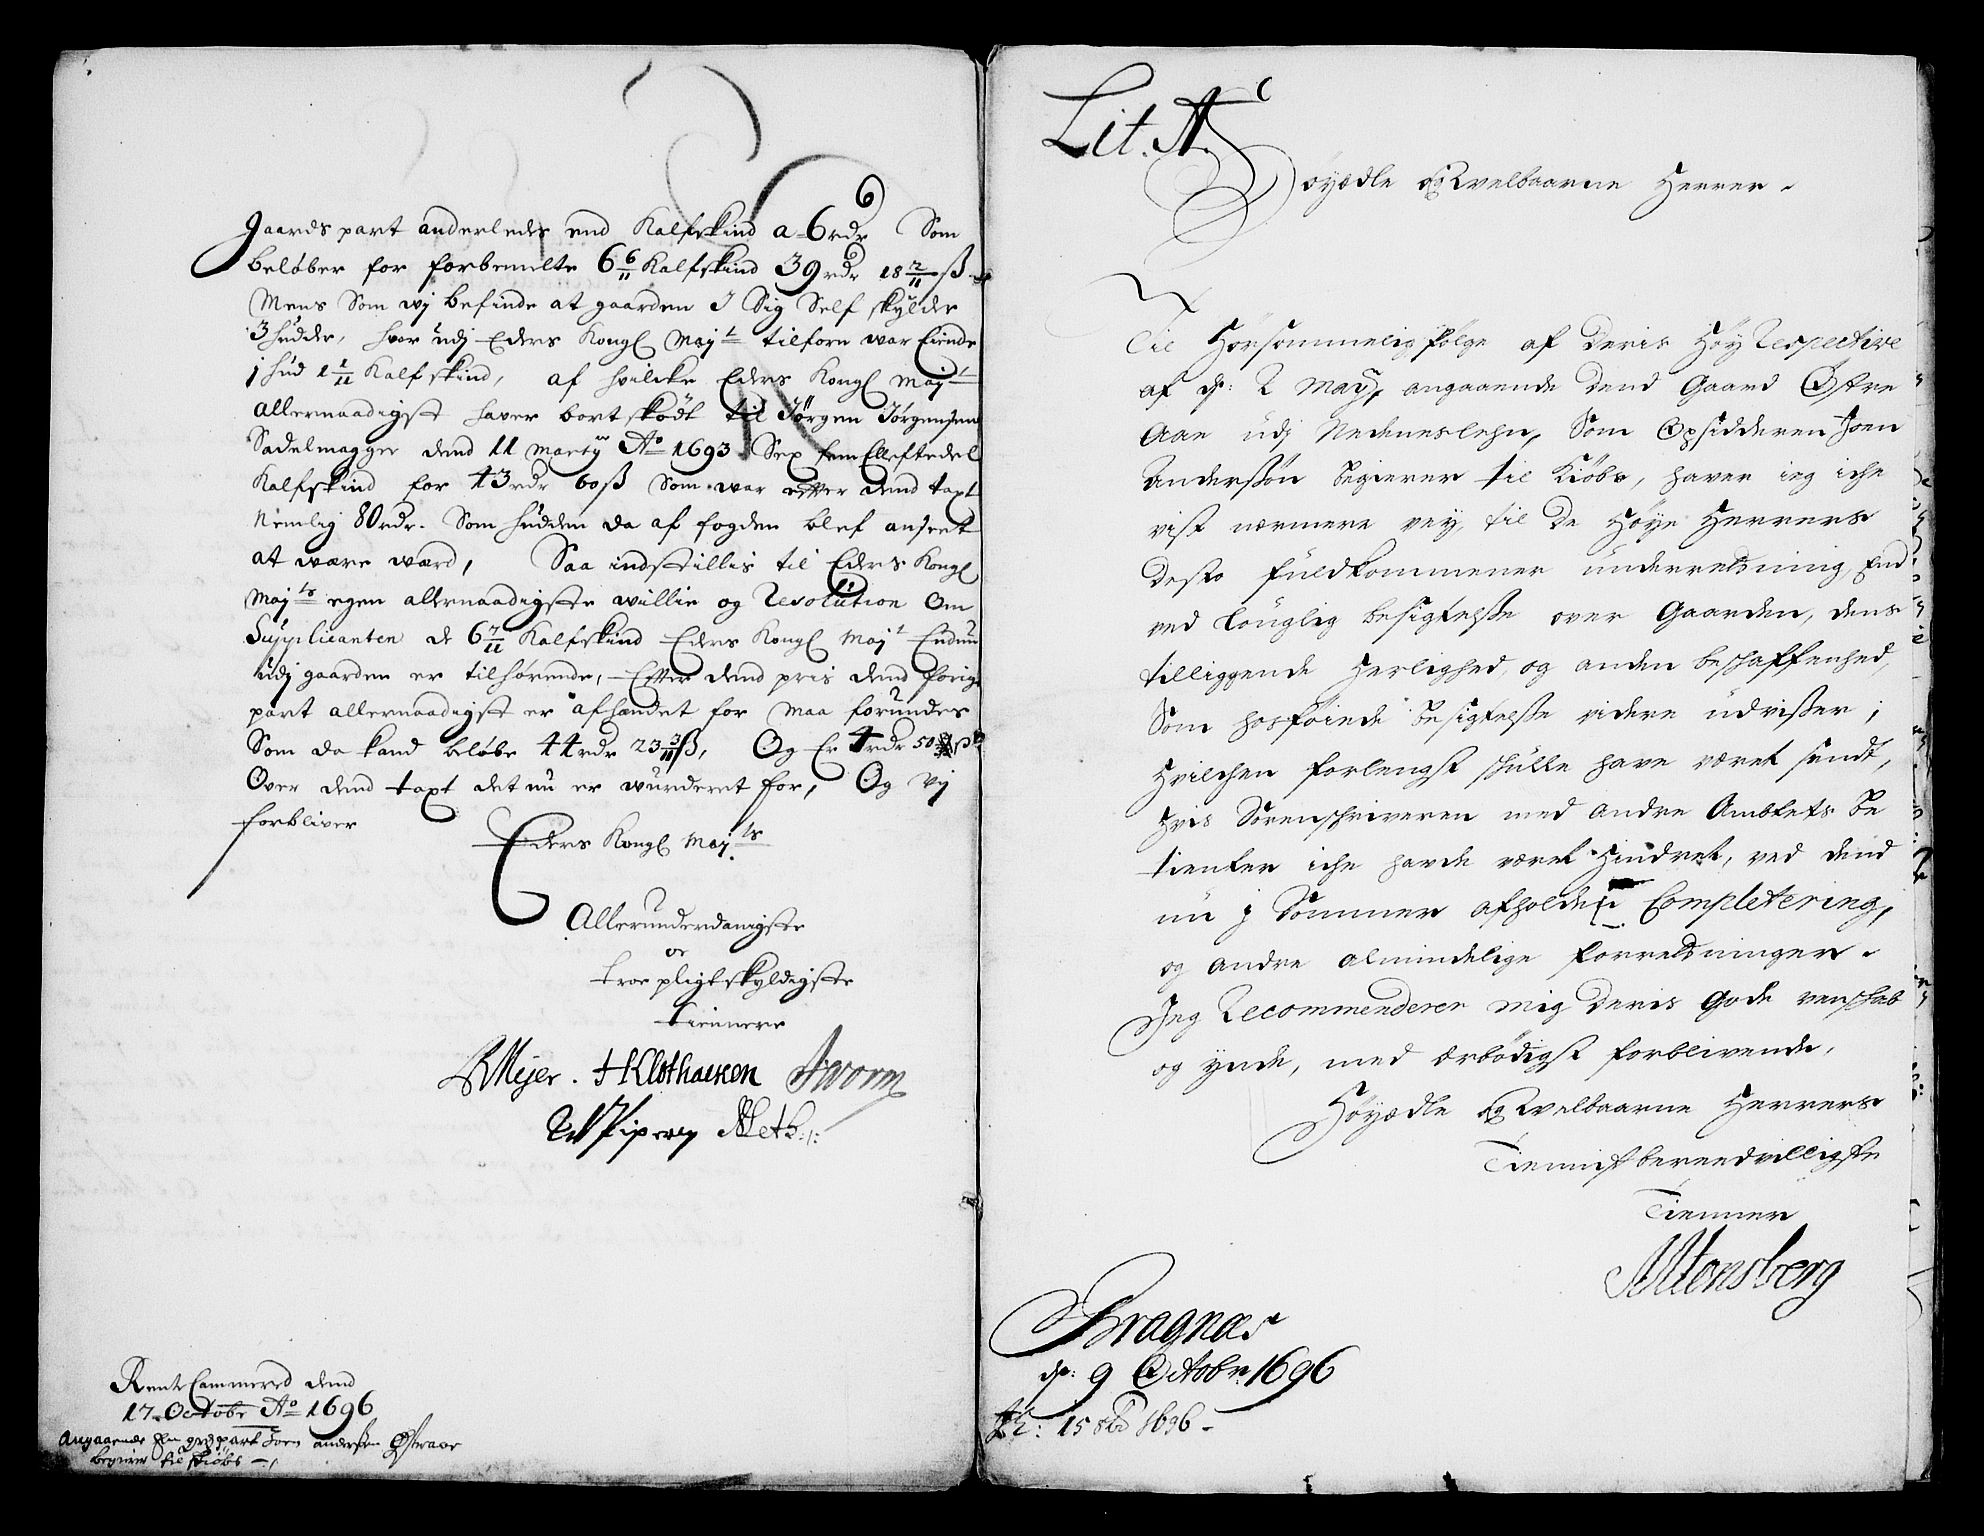 6
gaards part anderledes end Kalfskind a 6 rdr Som
beløber for forbemelte 6 6/11 Kalfskind 39 rdr 18 2/11 ß
Mens Som wj befinde at gaarden I Sig Self skylder
3 hudder, hvor udj Eders Kongl Majt tilforn war Eiende
1 hud 1 1/11 Kalfskind, af hvilcke Eders Kongl Majt
allernaadigst haver bortskiödt til Jörgen Jörgensen
Sadelmagger dend 11 Martij Ao 1693 Sex fem Elleftedel
Kalfskind for 43 rdr 60 ß Som war efter dend taxt
Nemlig 80 rdr. Som hudden da af fogden blef anseet
at være værd, Saa indstillis til Eders Kongl
Majts egen allernaadigste willie og Resolution Om
Supplicanten de 6 7/11 Kalfskind Eders Kongl Majt Endnu
udj gaarden er tilhørende, Efter dend pris dend forige
part allernaadigst er afhændet for maa forundes
Som da kand beløbe 44 rdr 23 3/11 ß, Og Er 4 rdr 50 ß
Over dend taxt det nu er wurderet for, Og Vj
forbliver
Eders Kongl Majts
Allerunderdanigste
oc
troe pligtskyldigste
tiennere
Meyer. H Klothacken JWorm
Piper Meth:
RenteCammered dend
17. Octobr Ao 1696
Angaaende En part Joen andersen Østraae
begierer til kiöbs
Lit. A.
Höyædle og Welbaarne Herrer
Til Hörsommelig følge af deris Höy Respective
af d: 2 May, angaaende dend Gaard Østre
Aae udj Nedeneslehn, Som Opsidderen Joen
Anderßön begierer til Kiöbs, haver ieg iche
vist nærmere vey, til de Höye Herrers
desto fuldkommener underretning, End
ved louglig besigtelße over Gaarden, dens
tilliggende Herlighed, og anden beschaffenhed,
Som hosföiede Besigtelße videre udvißer;
Hvilchen forlengst schulle have været sendt,
Hvis Sorenschriveren med andre Ambtets Be
tienter iche havde været Hindret, ved dend
nu j Sommer afholden Completering,
og andre almindelige forretninger.
Jeg Recommenderer mig deris gode venschab
og ynde, med ærbödigst forblivende,
Höyædle og Welbaarne Herrers
Tienistbereedvilligste
Tienner
MTonsberg
Bragnæs
d: 9 Octobr. 1696
15 8br 1696